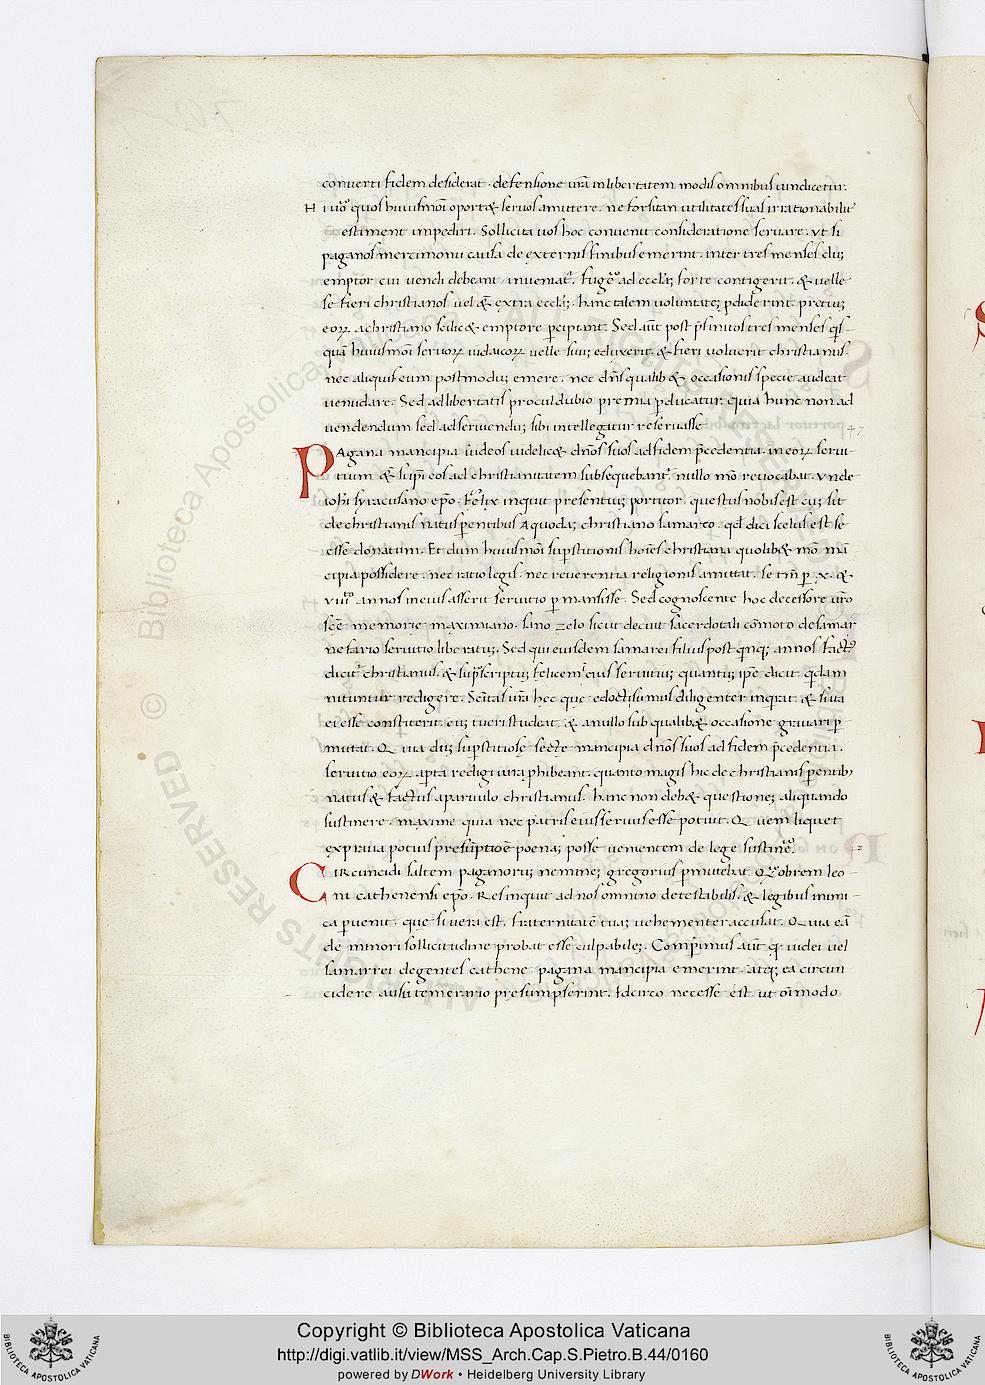 converti fidem desiderat. defensione urã in libertatem modis omnibus uindicetur.
Hi uͦo quos huiusmoi oport& seruos amittere. ne forsitan utilitates suas irrationabilit
estiment impediri. Sollicita uos hoc conuenit consideratione seruare. Vt si
paganos mercimonii causa de externis finibus emerint. inter tres menses duʒ
emptor cui uendi debeant inueniat. fugeͦ ad ecclãʒ forte contigerit. & uelle
se fieri christianos. uel & extra ecclãʒ. hanc talem uoluntateʒ pdiderint pretiuʒ
eoꝝ a christiano scilic& emptore pcipiant. Sed aut post pfinitos tres menses qs
quã huiusmoi seruoꝝ iudaicoꝝ uelle suuʒ eduxerit. & fieri uoluerit christianus.
nec aliquis eum postmoduʒ emere. nec dns qualib& occasionis specie audeat
uenudare. Sed ad libertatis procul dubio premia pducatur. quia hunc non ad
uendendum sed ad seruienduʒ sibi intellegatur reseruasse
47
PAgana mancipia iudeos uidelic& dnos suos ad fidem pcedentia. in eoꝝ serui-
tium & sup eos ad christianitatem subsequebant. nullo mo reuocabat. Vnde
iohi syracusano epo. Felix inquit presentiuʒ portitor. questus nobis est cuʒ sit
de christianis natus pentibus A quodaʒ christiano samareo. qd dici scelus est se
esse donatum. Et dum huiusmoi supstitionis hoies christiana quolib& mo mã
cipia possidere. nec ratio legis. nec reuerentia religionis amittat. se tm p. x. &
viiiͦ annos in eius asserit seruitio pmansisse. Sed cognoscente hoc decessore uro
sce memorie maximiano. sano zelo sicut decuit sacerdotali comoto de samar
nefario seruitio liberatuʒ. Sed qui eiusdem samarei filius post qnqʒ annos fact
dicit christianus. & supscriptuʒ felicem eius seruitiuʒ quantuʒ ipe dicit. qdam
nituntur redigere. Scitas ura hec que edocti sumus diligenter inqrat. & si ita
ei esse constiterit. euʒ tueri studeat. & a nullo sub qualib& occasione grauari p
mittat. Quia duʒ supstitiose secte mancipia dnos suos ad fidem pcedentia.
seruitio eoꝝ apta redigi iura phibeant. quanto magis hic de christianis pentibʒ
natus & factus a paruulo christianus. hanc non deb& questioneʒ aliquando
sustinere. maxime quia nec patris eius seruus esse potuit. Quem liquet
ex praua potius presuptioe poenaʒ posse uementem de lege sustineͦ.
CIRcuncidi saltem paganoruʒ nemineʒ gregorius pmittebat. Qͦobrem leo-
ni cathenensi epo. Res inquit ad nos omnino detestabilis. & legibus inimi-
ca puenit. que si uera est. fraternitatẽ tuaʒ uehementer accusat. Quia eã
de minori sollicitudine probat esse culpabileʒ. Compimus aut q iudei uel
samarei degentes cathene. pagana mancipia emerint. atqʒ ea circun
cidere ausu temerario presumpserint. Idcirco necesse est ut oimodo
Copyright © Biblioteca Apostolica Vaticana
http://digi.vatlib.it/view/MSS_Arch.Cap.S.Pietro.B.44/0160
powered by DWork • Heidelberg University Library